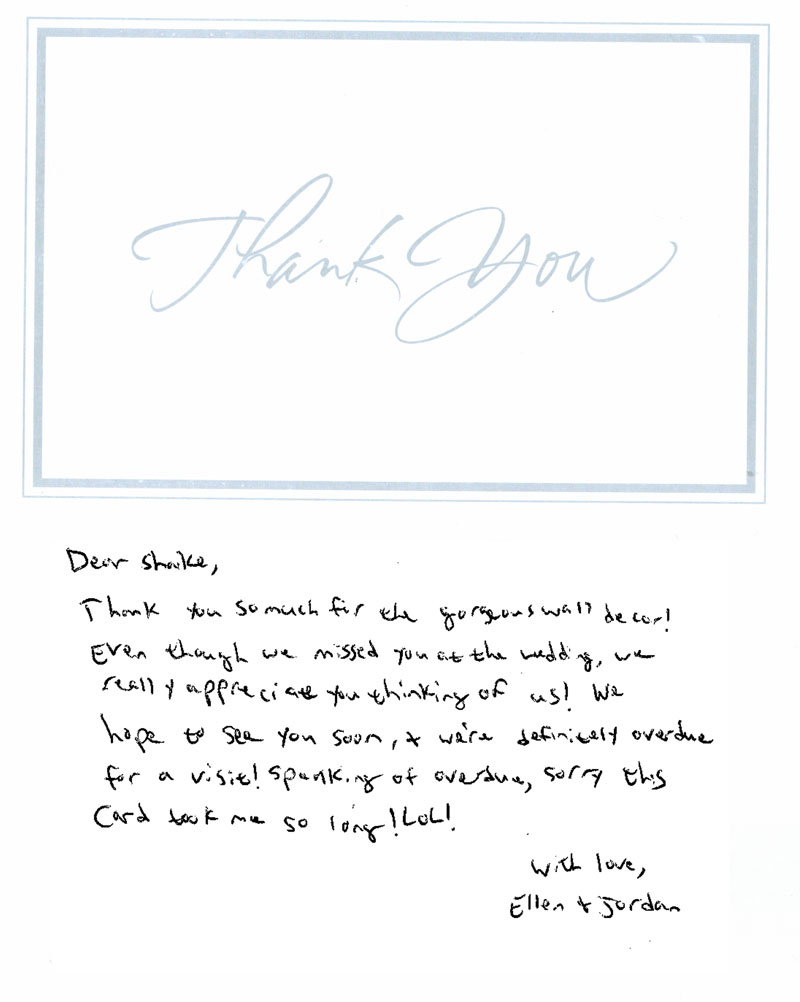 Thank You
Dear Shaike,
Thank you so much for the gorgeous wall decor!
Even though we missed you at the wedding, we
really appreciate you thinking of us! We
hope to see you soon, & we're definitely overdue
for a visit! Speaking of overdue, sorry this
Card took me so long! LoL!
With love,
Ellen & Jordan